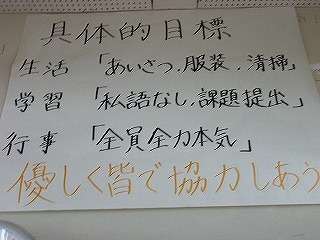 具体的目標
生活「あいさつ,服装,清掃」
学習「私語なし,課題提出」
行事「全員全力本気」
優しく皆で協力しあう